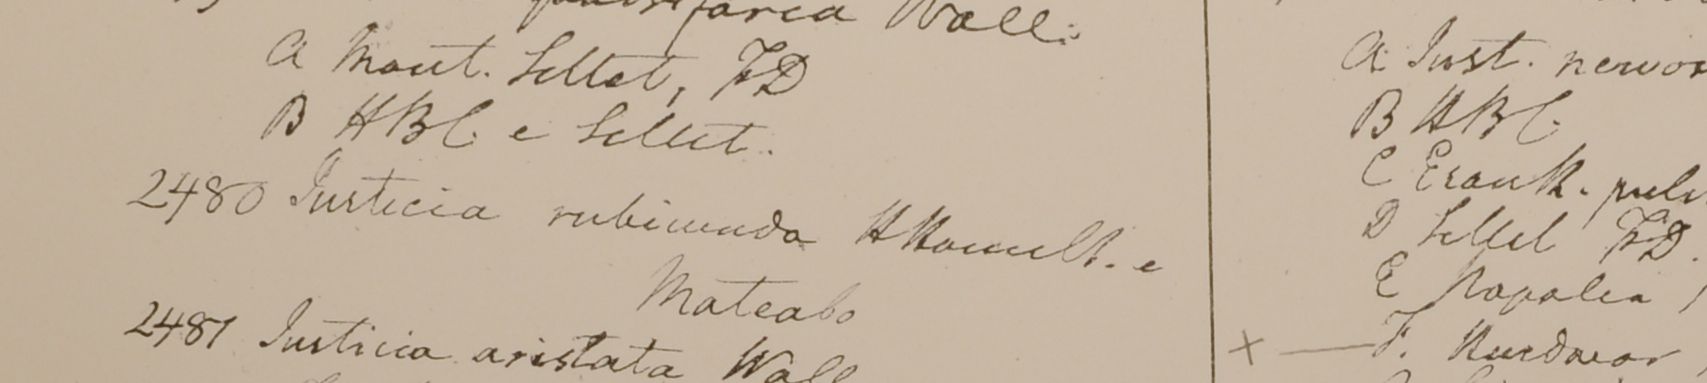 Wall.
A Mont. Sillet, FD
B HBC. e Sillet.
2480 Justicia rubicunda HHamilt. e
Mateabo
2481 Justicia aristata Wall
A Just. nervos
B HBC.
C Eranth. pulc
D Sillet FD.
E
× — F. Hurdwar